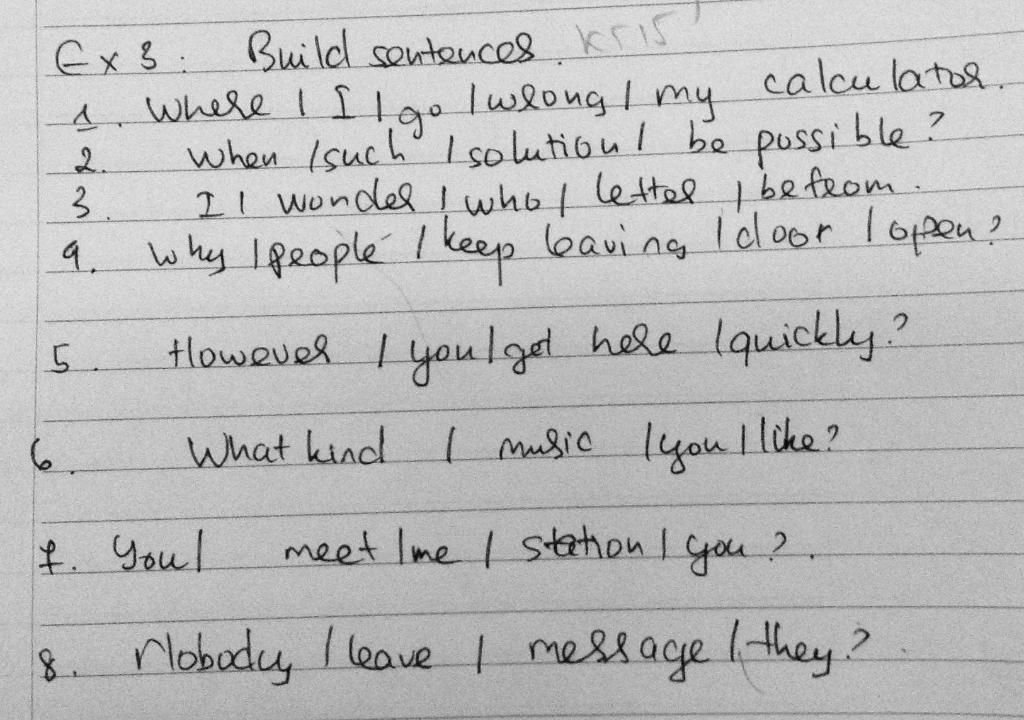 Ex 3: Build sentences. KS15
1. Where | I | go | wrong | my calculator.
2. When | such | solution | be possible?
3. I | wonder | who | letter | be from.
4. Why | people | keep leaving | door | open?
5. However | you | get here | quickly?
6. What kind | music | you | like?
7. You | meet | me | station | you?.
8. Nobody | leave | message | they?.